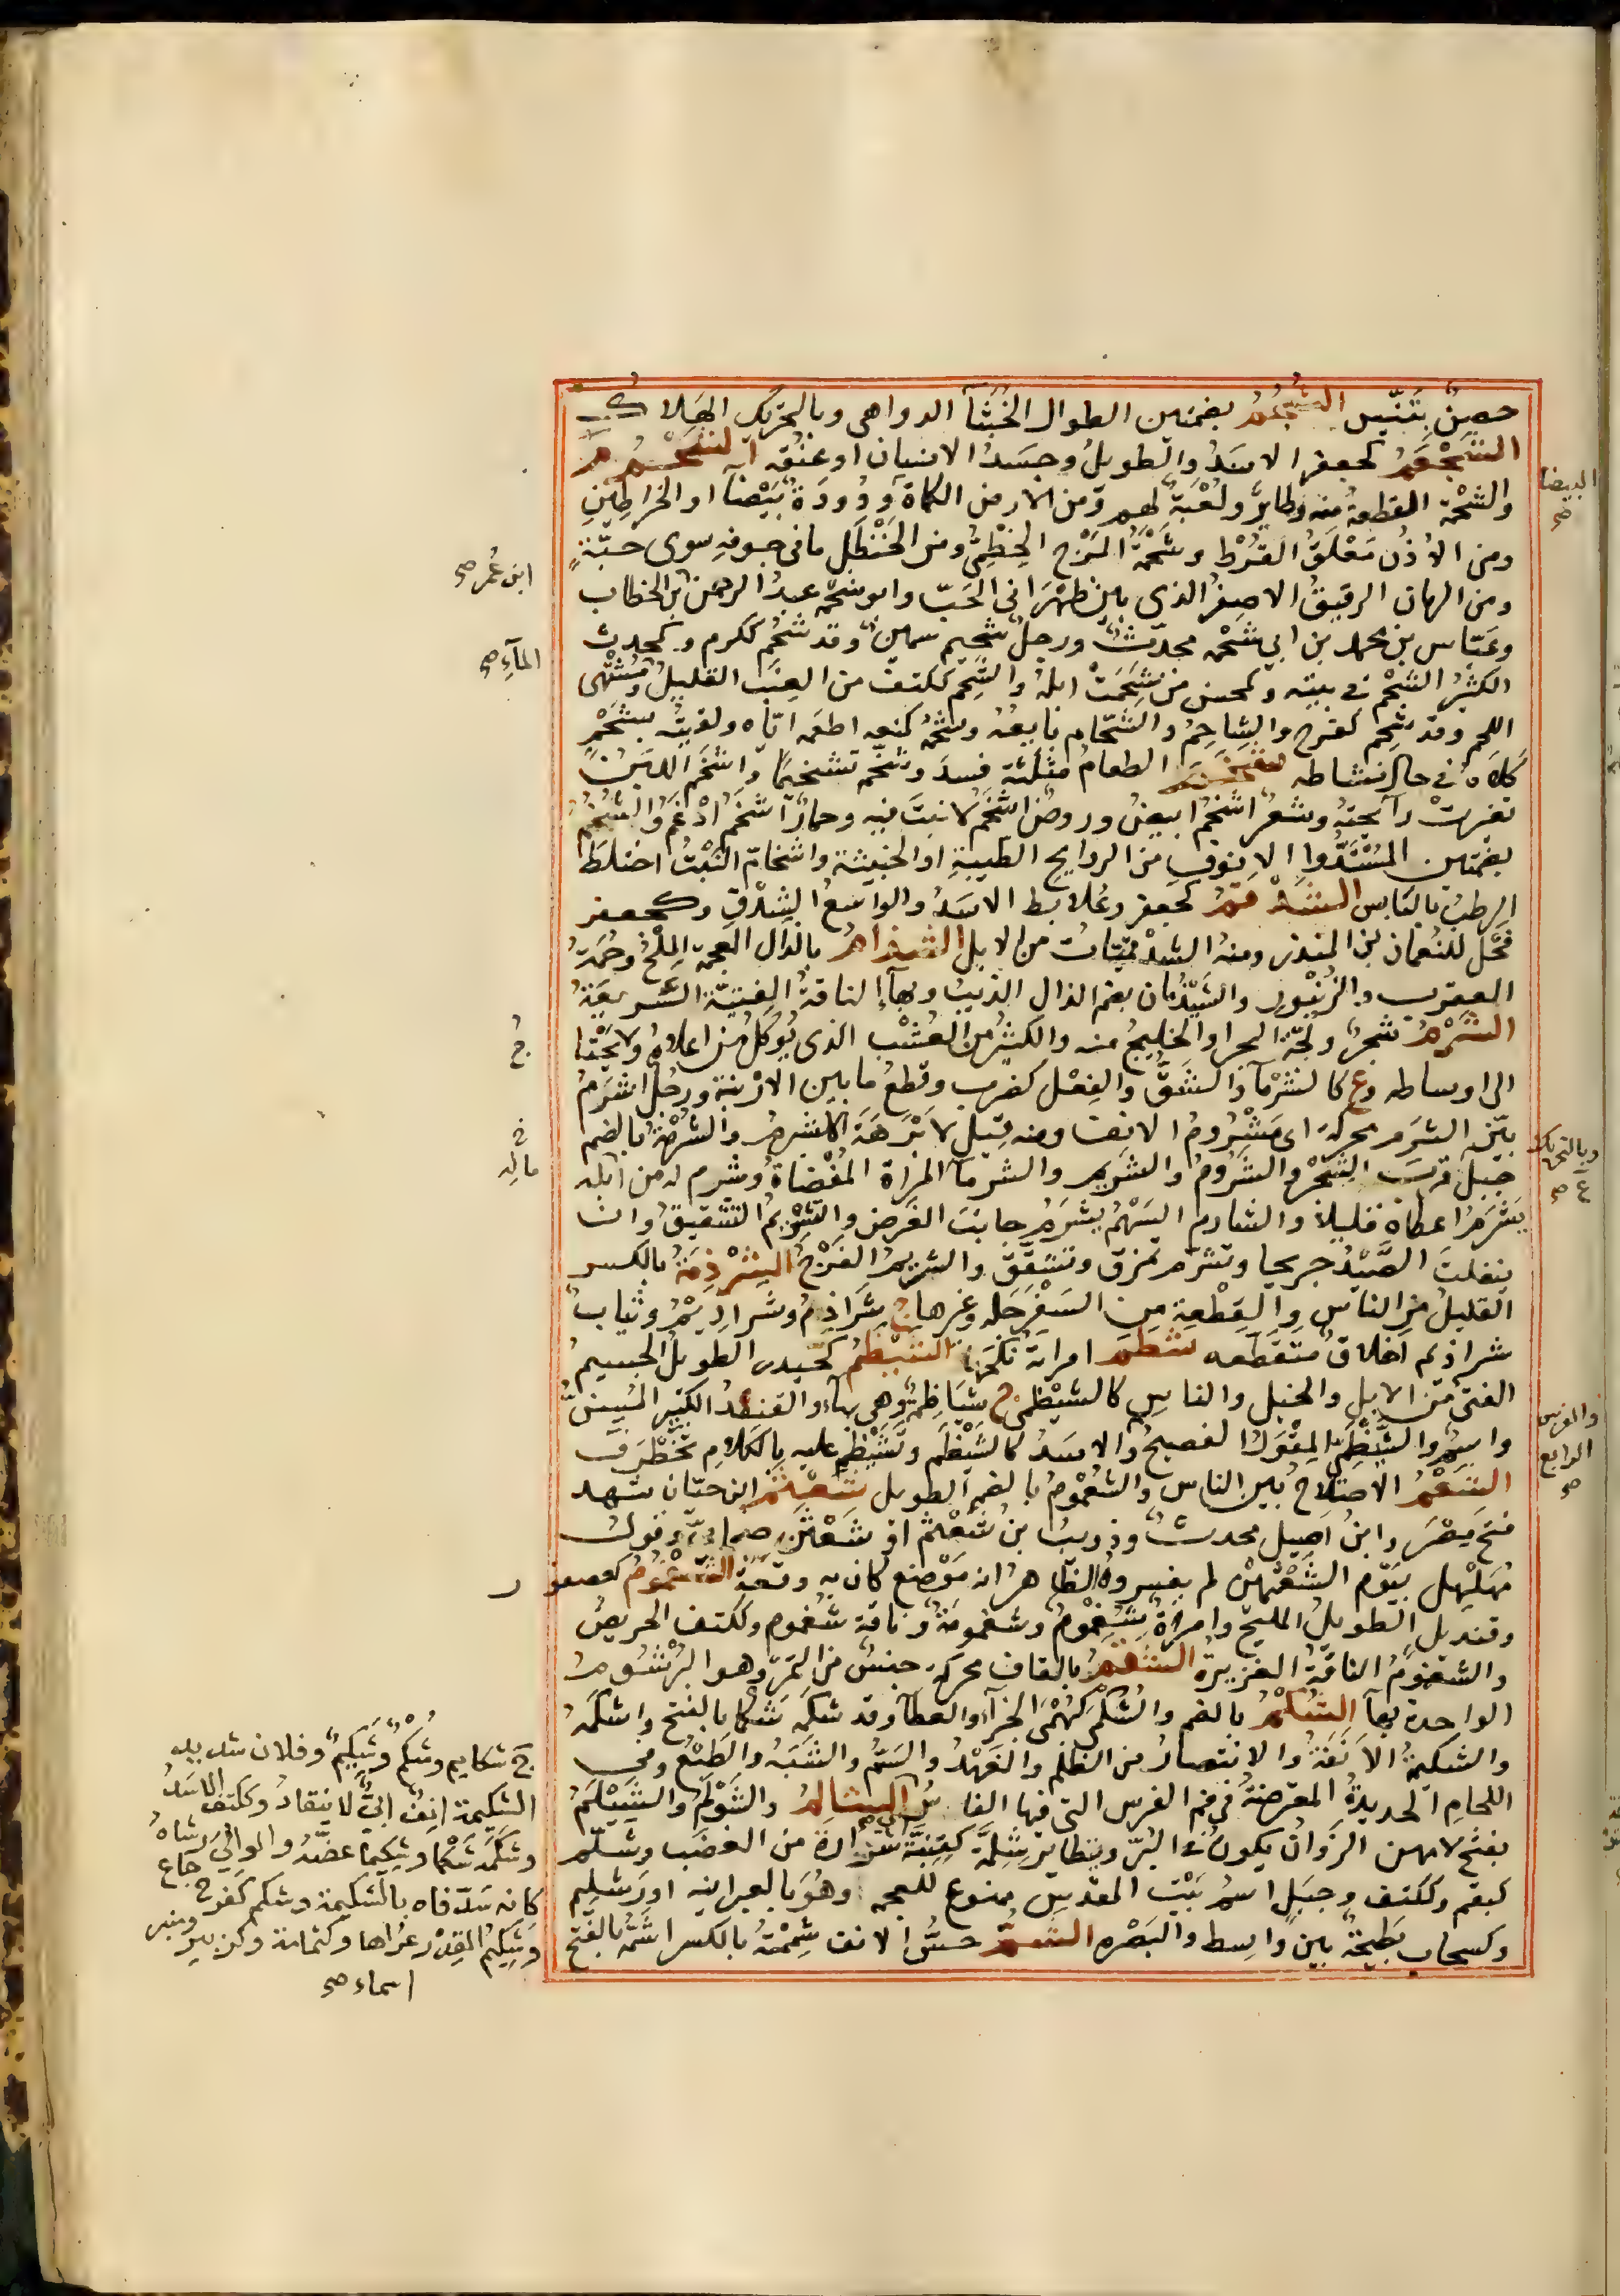 حصنٌ بتنّيس الشُجُمُ بضمتين الطوال الخُبَثآ الدواهى وبالتحريك الهلاك
الشَجْعَمُ كجعفر الاسَدُ والطويلُ وجَسَدُ الانسان او عنُقه الشَحْمُ م
والشحْمة القطعة منه وطايرٌ ولُعْبَةٌ لهم ومن الارض الكماة ودُودَةٌ بَيْضآ او الخراطين
ومن الاذُن مُعْلَقُ القُرْط وشَحْمَةُ المَرْج الخِطمىّ ومن الحَنْظَل ما فى جوفه سوى حبّهٍ
ومن الرمان الرقيقُ الاصفرُ الذى بين ظهْرَانى الحَبّ وابو شحْمه عبدُ الرحمٰن بن الخطاب
وعَبّاس بن محمد بن ابى شحْمه محدّثٌ ورجلٌ شحيم سمينٌ وقد شحُم ككرم وكمحدث
الكثيرُ الشحْم فى بيته وكمحسن من شَحِمَتْ ابلهُ والشَّحِم ككتف من العِنَب القليلُ ومُشْتَهى
اللحم وقد شحِم كفرح والشاحِمُ والشَحّام بايعُهُ وشحَمهُ كمنعه اطعَمه ايّاه ولقيتُه بشَحْمِ
كلاهُ فى حال نشاطه شخم الطعامُ مثلثة فسدَ وشخّم تشخيمًا واشخَم اللبَنُ
تغيرتْ رآيحتهُ وشعرٌ اشخمُ ابيضُ وروضٌ اشخَمُ لا نبتَ فيه وحمارٌ اشخمُ ادْغَمُ والشُخُمُ
بضمّتين المُسْتَدُّوا الانوف من الروايح الطيبةِ او الخبيثة واشخامّ النَبْتُ اختلطَ
الرطبُ باليَابس الشَدْقمُ كجعفر وعُلابط الاسَدُ والواسعُ الشِدْقِ وكجعفر
فَحْل للنُعمان بن المنذر ومنهُ الشدْقميّاتُ من الابل الشذامُ بالذال المعجمة المِلْحُ وحُمَةُ
العقرب والزُنْبور والشَيْذُمان بضم الذال الذيبُ وبهآء الناقةُ الفتيّة السَّريعَةُ
الشَرْمُ شجرٌ ولجّة البحر او الخليجُ منه والكثيرُ من العُشْب الذى يُوكلُ من اعلاهُ ولا يُحْتا
الى اوساطه وع كالشرْمآ والشَقُّ والفعْل كضرب وقطعُ ما بين الارْنبة ورجُلٌ اشرَمُ
بيّن الشرَم محركة اى مَشْرُومُ الانف ومنه قِيل لاَبْرَهَةَ الاشرمُ والشُرْمَةُ بالضم
جبل قرب الشِحْر والشَرُومُ والشَريم والشرمآ المرأة المُفْضَاةُ وشرم له من ماله
يَشْرِمُ اعطاهُ قليلًا والشارم السَهْمُ يشرمُ جانبَ الغَرض والتشْريمُ التشقيقُ وان
ينفلتَ الصَّيْدُ جريحا وتشرّم تمزق وتشَقّقَ والشريمُ الفَرْجُ الشِرْذِمَةُ بالكسر
القليلُ من الناس والقِطْعة من السَفَرْجَله وغيرها ج شَرَاذِمُ وشَرَاذِيمُ وثيابٌ
شراذم اخلاقٌ متقطّعه شطم امراتهُ نكحَها الشَيْظَمُ كحَيدر الطويلُ الجَسيمُ
الفتىّ من الابل والخيل والناس كالشيْظمىّ ج شَيَاظِمَةٌ وهى بهآء والقنفُذُ الكبيرُ المُسِنُّ
واسمٌ والشَيْظَمىّ المِقْوَلُ الفصيحُ والاسَدُ كالشَيْظَم وتَشَيْظَم عليه بالكلام تَخَطْرَفَ
الشَعْمُ الاصلاحُ بين الناس والشُعْمُومُ بالضم الطويل شَعْثَم ابن حيّان شهد
فتح مِصْرَ وابنُ اصيل محدثٌ وذويبُ بن شعْثم او شَعْثن صحابىٌّ وقولُ
مُهَلْهِل بيَوْم الشَعْثَمَيْن لم يفسروهُ والظاهرُ انه مَوْضعٌ كان به وقعَةٌ الشُغْمُومُ كعصفور
وقنديل الطويلُ المليحُ وامرأةٌ شُغْمُومٌ وشغمومَةٌ وناقة شغموم وككتف الحريصُ
والشغمومُ الناقةُ الغزيرةُ الشَقَمُ بالقاف محركة جنسٌ من التمرَ وهو البرْشُومُ
الواحدة بهآ الشُكْمُ بالضم والشُكْمَى كبُهْمَى الجزآ والعطآ وقد شكمه شَكْما بالفتح واشكمَهُ
والشكيمةُ الاَنَفَةُ والانتصارُ من الظلْم والعَهْدُ والسَمُّ والشَبَهُ والطَبْعُ وفى
اللجام الحديدةُ المعترضةُ فى فم الفرس التى فيها الفاسُ الشالمُ والشَوْلَمُ والشَيْلَمُ
بفتح لامهن الزُوانُ يكون فى البُرّ وتطايَر شِلِّمَةٌ كقِنِّبَةٍ شرارة من الغضَب وشلّم
كبقّم وككتف وجبَل اسمُ بَيْت المقدس ممنوع للعجمه وهُوَ بالعبرانيه اورشَلِيم
وكسحاب بَطِيحَةٌ بين واسط والبَصْره الشَمُّ حسُّ الانف شمِمْتُه بالكسر اشَمّهُ بالفتح
البيضا صح
ابن عُمر صح
المآءِ صح
ج
خ
ماله
وبالتحريك
ع صح
والفرس
الرابع
صح
ج شكايم وشُكُمٌ وشَكِيمٌ وفلان شديد
الشكيمة انِفٌ ابىٌّ لا ينقادُ وككتف الاسَدُ
وشكَمَهُ شَكْمًا وشكيمًا عضّهُ والوالىَ رشاهُ
كانه سَدّ فاه بالشكيمة وشكم كفرح جاع
وشكيمُ القِدْر عُراها وكثمامة وكزبير ومنبر
اسماء صح